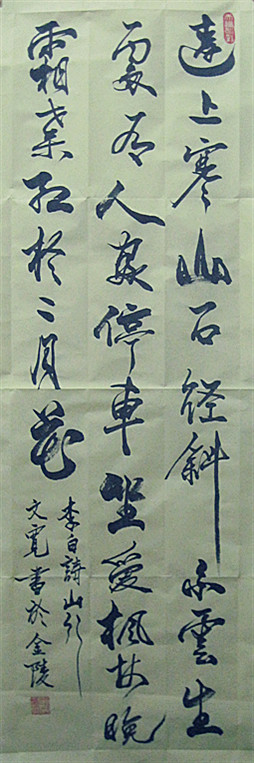 遠上寒山石径斜白雲生
處有人家停車坐愛楓林晚
霜葉紅於二月花
李白詩山行
文寬書於金陵